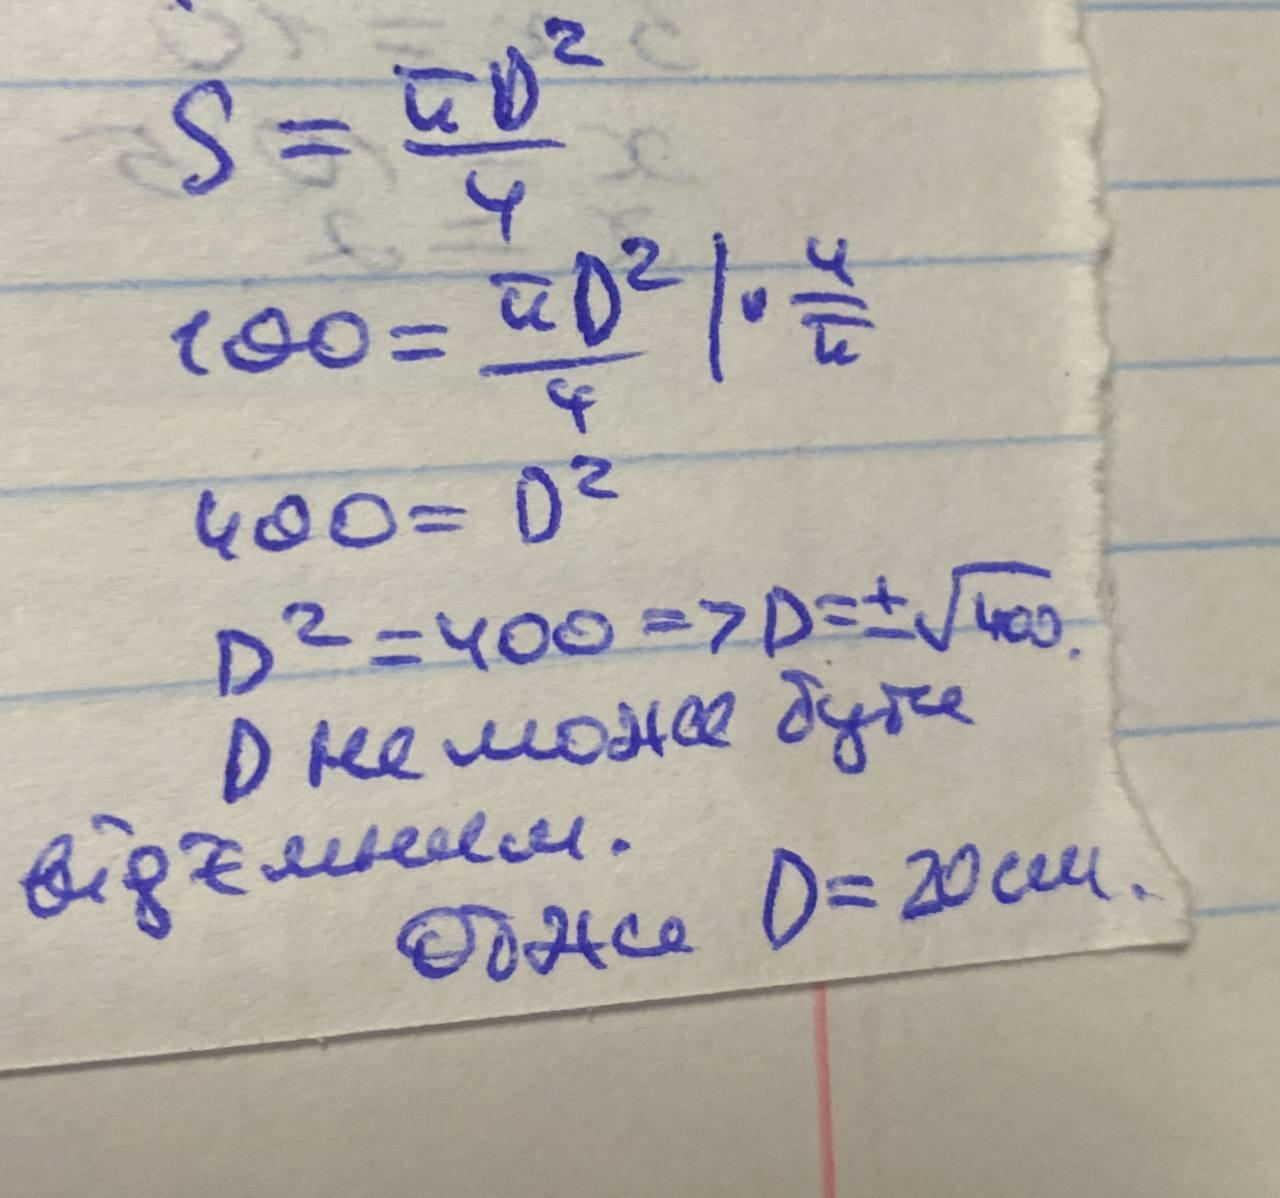 S = πD²/4
100 = πD²/4 | · 4/π
400 = D²
D² = 400 => D = ±√400.
D не може бути
від'ємним.
Отже D = 20 см.